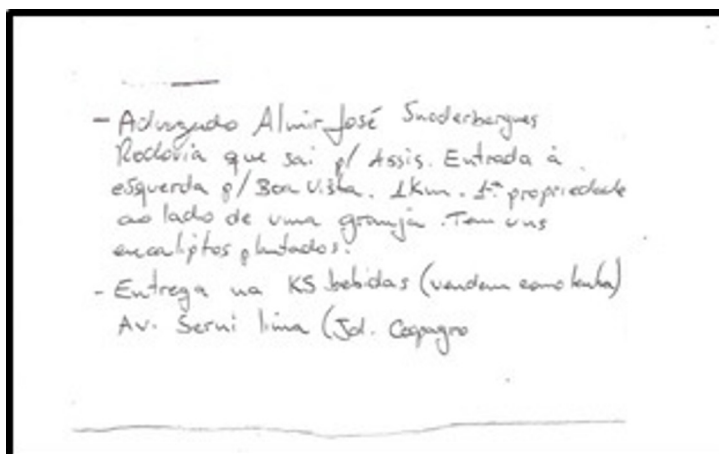 - Advogado Almir José
Rodovia que sai p/ Assis. Entrada à
esquerda p/ Boa Vista. 1km. 1ª propriedade
ao lado de uma granja. Tem uns
eucaliptos plantados.
- Entrega na KS bebidas (vendem como lenha)
Av. Serni lima (Jd. Copagro